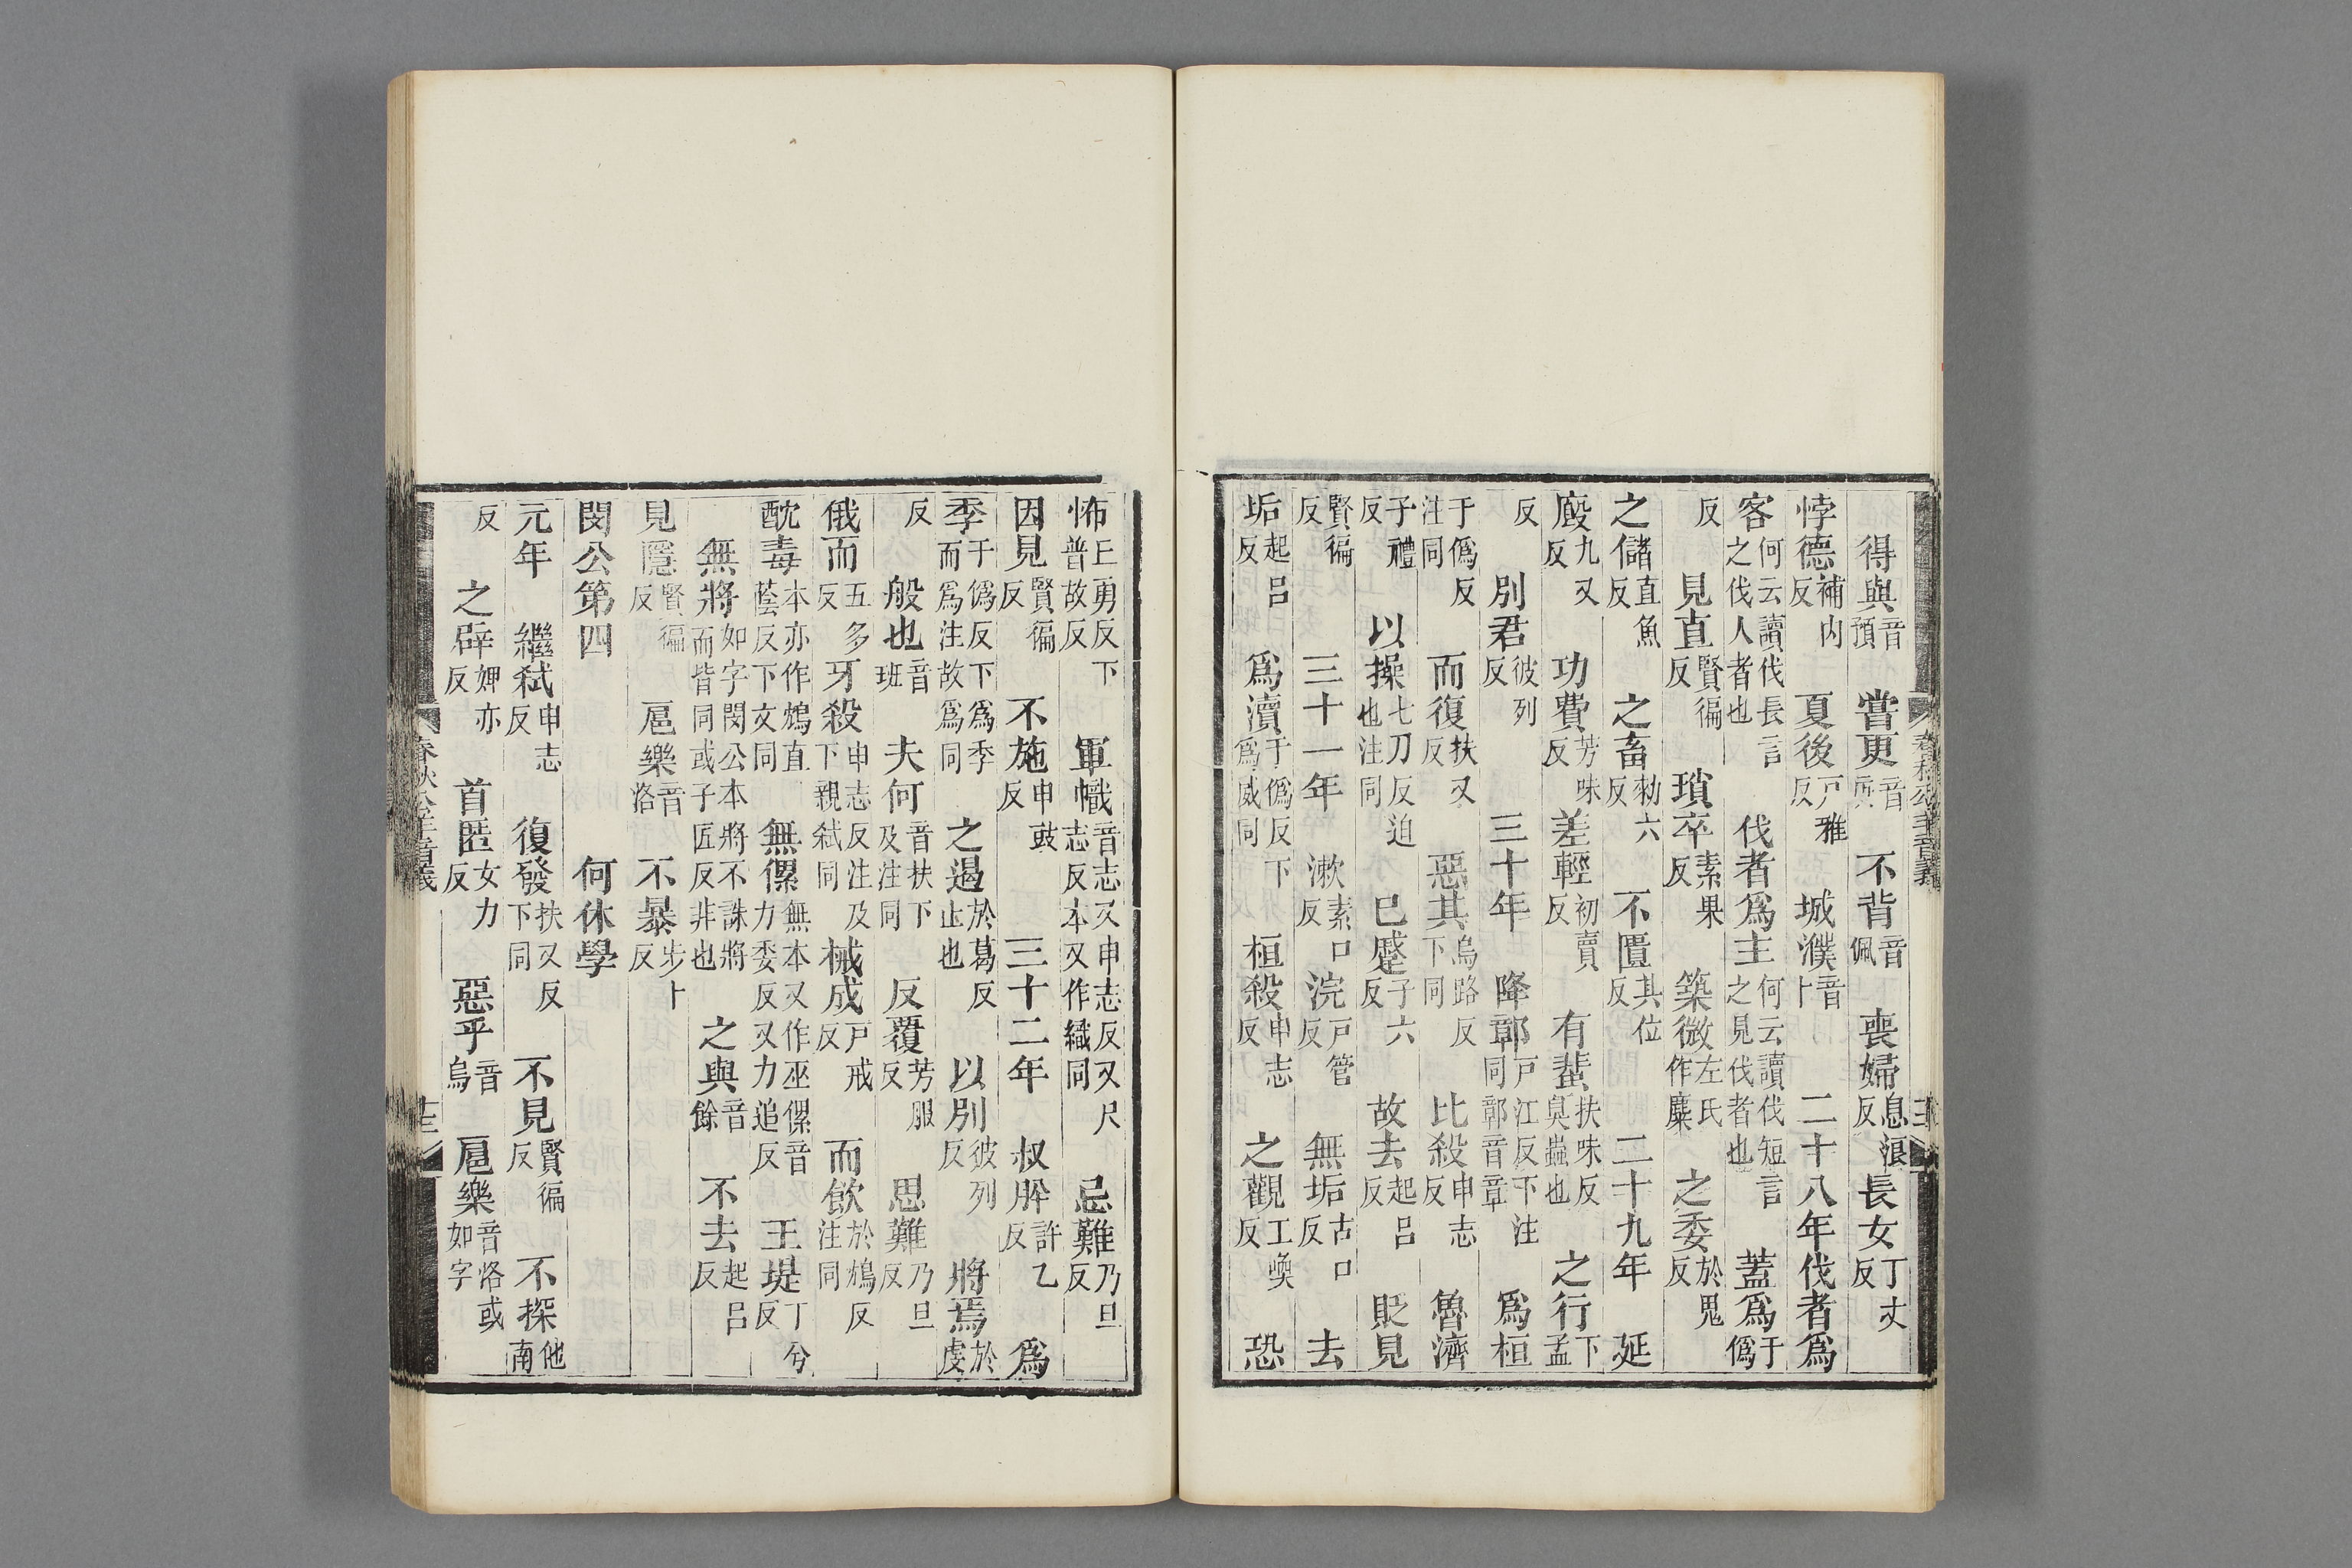 得與音預　嘗更音庚　不背音佩　喪婦息浪反　長女丁丈反
悖德補內反　夏後戶雅反　城濮音卜　二十八年伐者爲
客何云讀伐長言之伐人者也　伐者爲主何云讀伐短言之見伐者也　蓋爲于僞
反　見直賢徧反　瑣卒素果反　築微左氏作麋　之委於鬼反
之儲直魚反　之畜勑六反　不匱其位反　二十九年　延
廏九又反　功費芳味反　差輕初賣反　有蜚扶味反臭蟲也　之行下孟
反　別君彼列反　三十年　降鄣戶江反下注同鄣音章　爲桓
于僞反注同　而復扶又反　惡其烏路反下同　比殺申志反　魯濟
子禮反　以操七刀反迫也注同　已蹙子六反　故去起呂反　貶見
賢徧反　三十一年　漱素口反　浣戶管反　無垢古口反　去
垢起呂反　爲瀆于僞反下爲威同　桓殺申志反　之觀工喚反　恐
怖上勇反下普故反　軍幟音志又申志反又尺志反本又作織同　忌難乃旦反
因見賢徧反　不施申豉反　三十二年　叔肸許乙反　爲
季于僞反下爲季而爲注故爲同　之遏於葛反止也　以別彼列反　將焉於虔
反　般也音班　夫何音扶下及注同　反覆芳服反　思難乃旦反
俄而五多反　牙殺申志反注及下親弒同　械成戶戒反　而飲於鴆反注同
酖毒本亦作鴆直蔭反下文同　無傫無本又作巫傫音力委反又力追反　王堤丁兮反
無將如字閔公本將不誅將而皆同或子匠反非也　之與音餘　不去起呂反
見隱賢徧反　扈樂音洛　不暴步卜反
閔公第四　何休學
元年　繼弒申志反　復發扶又反下同　不見賢徧反　不探他南
反　之辟婢亦反　首匿女力反　惡乎音烏　扈樂音洛或如字
春秋公羊音義　十三